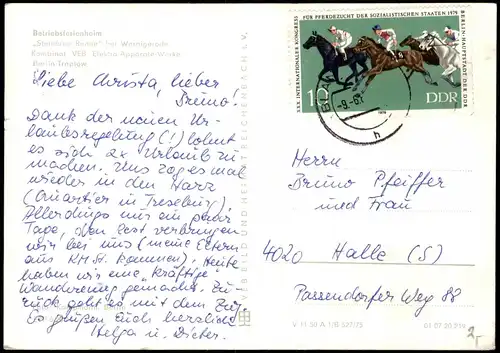 Betriebsferienheim
"Steinerne Renne" bei Wernigerode
Kombinat VEB Elektro-Apparate-Werke
Berlin-Treptow
Liebe Christa, lieber
Bruno!
Dank der neuen Ur-
laubsregelung (!) lohnt
es sich 2x Urlaub zu
machen. Uns zog es mal
wieder in den Harz
(Quartier in Treseburg).
Allerdings nur ein paar
Tage, den Rest verbringen
wir bei uns (meine Eltern
aus K.M.St. kommen). Heute
haben wir eine "kräftige"
Wanderung gemacht. Zu-
rück geht es mit dem Zug.
Es grüßen Euch herzlichst
Helga u. Dieter.
VEB BILD UND HEIMAT REICHENBACH i. V.
XXX. INTERNATIONALER KONGRESS
FÜR PFERDEZUCHT DER SOZIALISTISCHEN STAATEN 1979
BERLIN-HAUPTSTADT DER DDR
10
DDR
-9.-6.
h
Herrn
Bruno Pfeiffer
und Frau
4020 Halle (S)
Passendorfer Weg 88
V 11 50 A 1/B 527/75
01 07 20 219
2,-